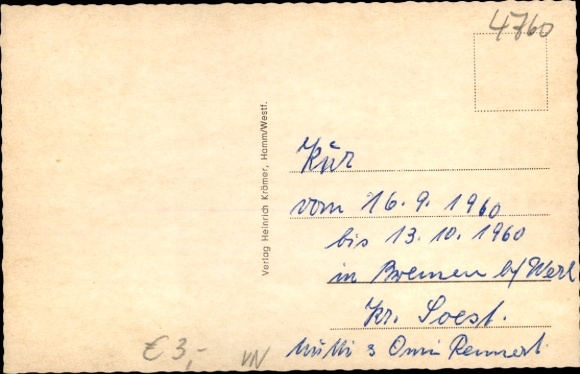 4760
Verlag Heinrich Krämer, Hamm/Westf.
Kur
vom 16.9.1960
bis 13.10.1960
in Bremen b/Werl
Kr. Soest.
Mutti & Omi Rennert
€ 3,- VN